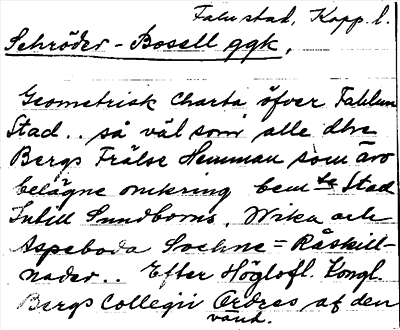 Falu stad, Kopp. l.
Schröder - Bosell ggk,
Geometrisk Charta öfver Fahlun
Stad.. så väl som alle dhe
Bergs Frälse Hemman som äro
belägne omkring bem te Stad
Intill Sundborns, Wika och
Aspeboda Sochne = Råskill-
nader.. Efter Höglofl. Kongl.
Bergs Collegii Ordres af den
vänd.